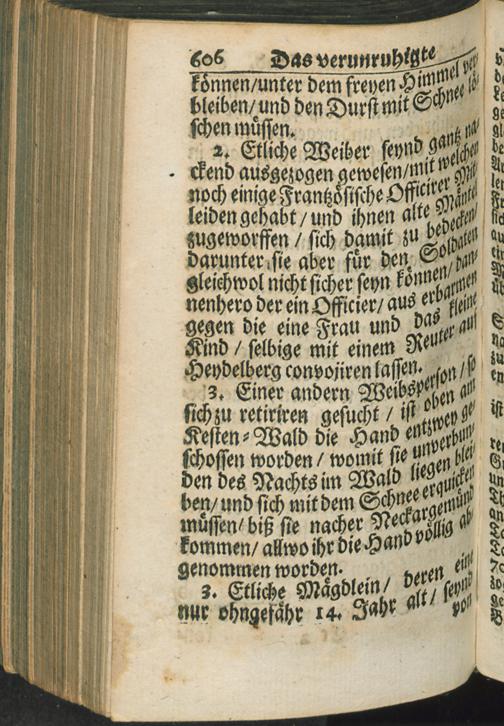 606 Das verunruhigte
können/unter dem freyen Himmel ver-
bleiben/und den Durst mit Schnee lö-
schen müssen.
2. Etliche Weiber seynd gantz na-
ckend ausgezogen gewesen/mit welchen
noch einige Frantzösische Officirer Mit-
leiden gehabt/und ihnen alte Mäntel
zugeworffen/sich damit zu bedecken/
darunter sie aber für den Soldaten
gleichwol nicht sicher seyn können/dan-
nenhero der ein Officier/aus erbarmen
gegen die eine Frau und das kleine
Kind/selbige mit einem Reuter auf
Heydelberg convojiren lassen.
3. Einer andern Weibsperson/so
sich zu retiriren gesucht/ist oben am
Kesten-Wald die Hand entzwey ge-
schossen worden/womit sie unverbun-
den des Nachts im Wald liegen blei-
ben/und sich mit dem Schnee erquicken
müssen/biß sie nacher Neckargemünd
kommen/allwo ihr die Hand völlig ab-
genommen worden.
3. Etliche Mägdlein/deren eine
nur ohngefähr 14. Jahr alt/seynd
von